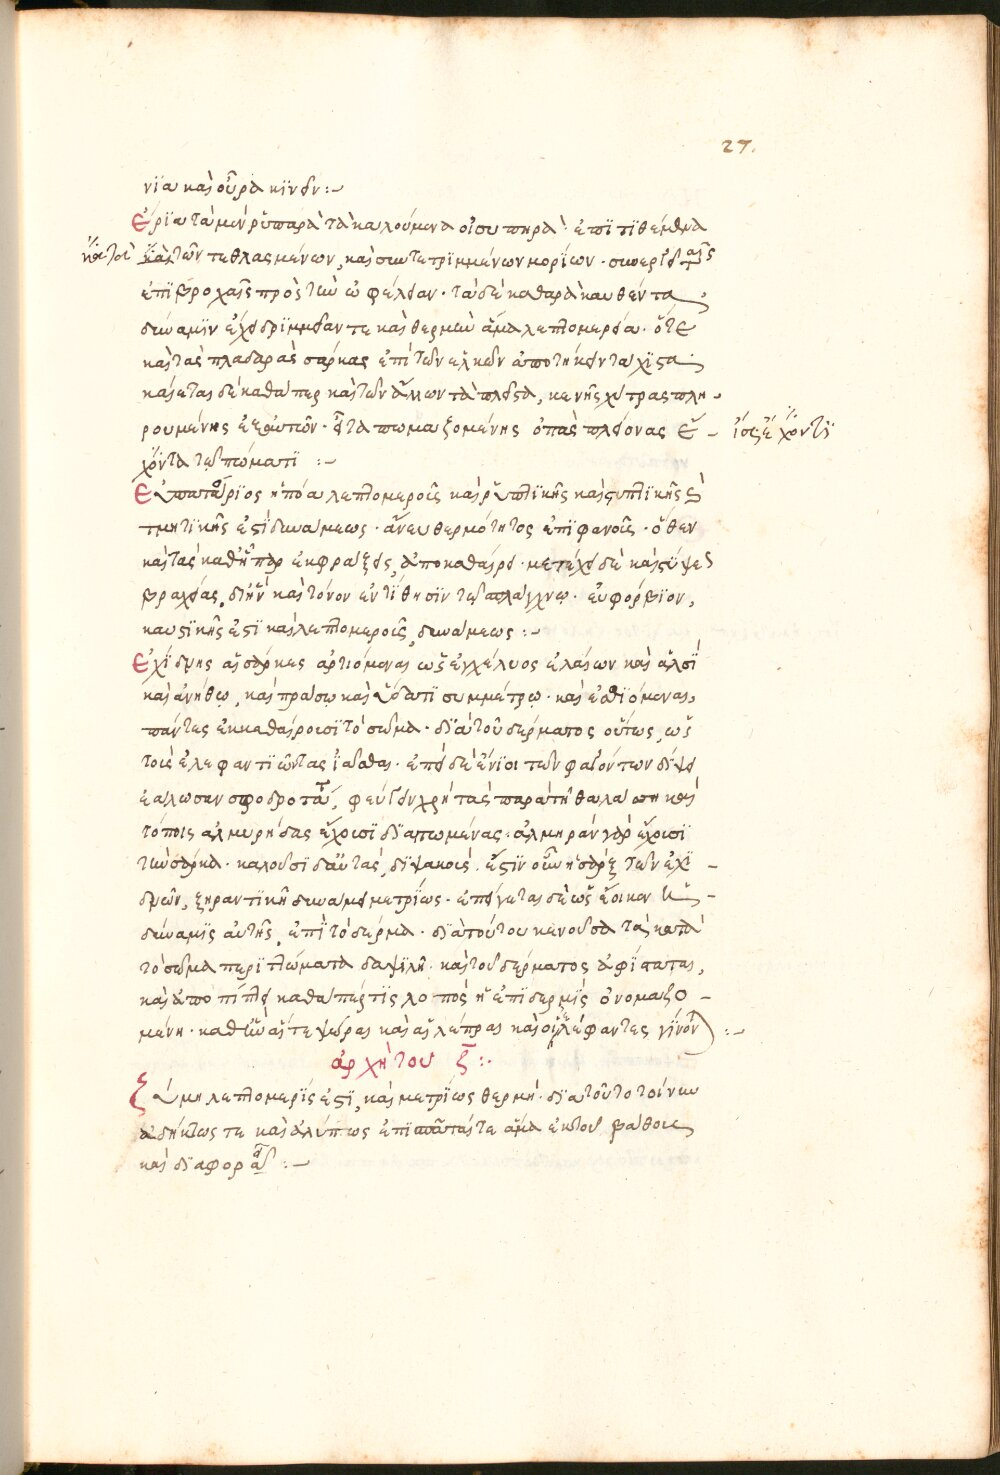 27.
νϊα καὶ οὖρα κϊνεῖν :~
Ἔρϊα τὰ μὲν ῥϋπαρὰ τὰ καλούμενα οἰσυπηρὰ ἐπϊτϊθέμενα
κατὰ τῶν τεθλασμένων, καὶ συντετριμμένων μορίων· συνεργεῖ ταῖς
ἐπϊβροχαῖς πρὸς τὴν ὠφέλειαν· τὰ δὲ καθαρὰ καυθέντα,
δύναμϊν ἔχει δριμεῖαν τε καὶ θερμὴν ἅμα λεπτομερεία· ὅτε
καὶ τὰς πλαδαρὰς σάρκας ἐπὶ τῶν ἑλκῶν ἀποτήκειν τάχϊστα·
καίεται δὲ καθάπερ καὶ τῶν ἄλλων τὰ πλεῖστα, κενῆς χύτρας πλη-
ρουμένης ἐξ αὐτῶν· εἶτα πωμαζομένης ὀπὰς πλείονας ἔ-
χοντα τῷ πώματϊ :~
Εὐπατώρϊος ἡ πόα λεπτομεροῦς καὶ ῥυπτϊκῆς καὶ στυπτϊκῆς καὶ
τμητϊκῆς ἐστὶ δυνάμεως· ἄνευ θερμότητος ἐπϊφανοῦς· ὅθεν
καὶ τὰς καθ' ἧπαρ ἐκφράξεις ἀποκαθαίρει· μετέχει δὲ καὶ στύψεως
βραχείας, δι' ἣν καὶ τόνον ἐντϊθησϊν τῷ σπλάγχνῳ· εὐφόρβϊον,
καυστϊκῆς ἐστϊ καὶ λεπτομεροῦς δυνάμεως :~
Ἐχίδνης αἱ σάρκες ἀρτυόμεναι ὡς ἐγχέλυος ἐλαίων καὶ ἁλσὶ
καὶ ἀνήθῳ, καὶ πράσῳ καὶ ὕδατϊ συμμέτρῳ· καὶ ἐσθϊόμεναι,
πάντες ἐκκαθαίρουσϊ τὸ σῶμα· δϊὰ τοῦ δέρματος οὕτως, ὡς
τοὺς ἐλεφαντϊῶντας ἰᾶσθαι· ἐπεὶ δὲ ἔνϊοι τῶν φαγόντων δίψει
ἑάλωσαν σφοδροτάτῳ, φεύγειν χρὴ τὰς παρὰ τῇ θαλάσσῃ καὶ
τόποις ἁλμυρώδεσι ἔχουσϊ δϊαιτωμένας· ἁλμηρὰν γὰρ ἔχουσϊ
τὴν σάρκα· καλοῦσϊ δ' αὐτὰς, διψάκους. ἔστϊν οὖν ἡ σὰρξ τῶν ἐχϊ-
δνῶν, ξηραντϊκὴ δυνάμει μετρίως· ἐπείγεται δὲ ὡς ἔοικεν ἡ -
δύναμϊς αὐτῆς, ἐπϊ τὸ δέρμα· δϊὰ τούτου κενοῦσα τὰ κατὰ
τὸ σῶμα περϊττώματα δαψϊλῆ· καὶ τοῦ δέρματος ἀφίσταται,
καὶ ἀποπίπτει καθάπερ τϊς λοπὸς ἡ ἐπϊδερμϊς ὀνομαζο-
μένη· καθ' ἣν αἵ τε ψώραι καὶ αἱ λέπραι καὶ οἱ ἐλέφαντες γίνονται :~
ἀρχὴ τοῦ ζ :·
Ζύμη λεπτομερής ἐστϊ, καὶ μετρίως θερμή· δϊὰ τοῦτο τοίνυν
ἀδήκτως τε καὶ ἀλύπως ἐπϊσπᾶταί τε ἅμα ἐκ τοῦ βάθους
καὶ δϊαφορεῖ :~